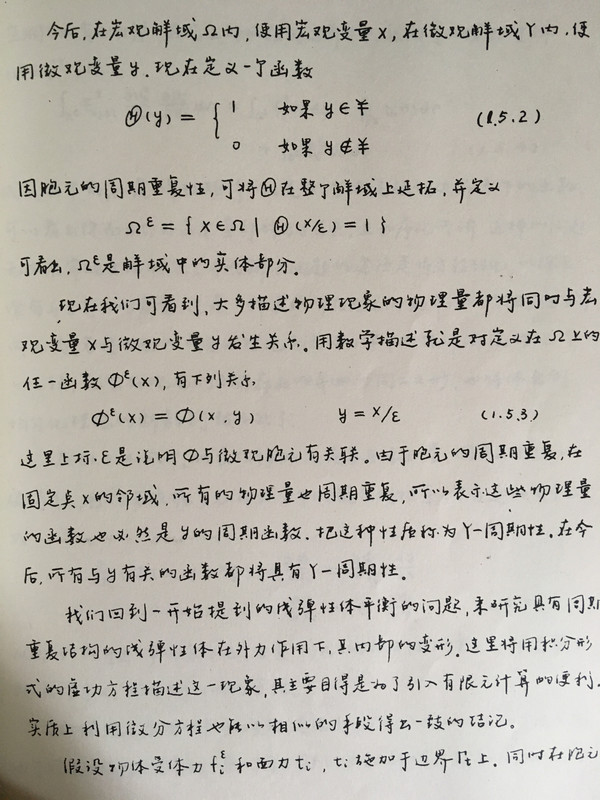 今后,在宏观解域Ω内,使用宏观变量x,在微观解域Y内,使
用微观变量y.现在定义一个函数
Θ(y) = { 1 如果 y∈¥ (1.5.2)
0 如果 y∉¥
因胞元的周期重复性,可将Θ在整个解域上延拓,并定义
Ω^ε = { x∈Ω | Θ(x/ε) = 1 }
可看出,Ω^ε是解域中的实体部分.
现在我们可看到,大多描述物理现象的物理量都将同时与宏
观变量x与微观变量y发生关系.用数学描述就是对定义在Ω上的
任一函数Φ^ε(x),有下列关系
Φ^ε(x) = Φ(x,y) y = x/ε (1.5.3)
这里上标ε是说明Φ与微观胞元有关联。由于胞元的周期重复,在
固定点x的邻域,所有的物理量也周期重复,所以表示这些物理量
的函数也必然是y的周期函数.把这种性质称为Y-周期性。在今
后,所有与y有关的函数都将具有Y-周期性。
我们回到一开始提到的线弹性体平衡的问题,来研究具有周期
重复结构的线弹性体在外力作用下,其内部的变形.这里将用积分形
式的虚功方程描述这一现象,其主要目得是为了引入有限元计算的便利.
实质上利用微分方程也能以相似的手段得出一致的结论。
假设物体受体力f_i^ε和面力t_i,t_i施加于边界Γ_t上.同时在胞元